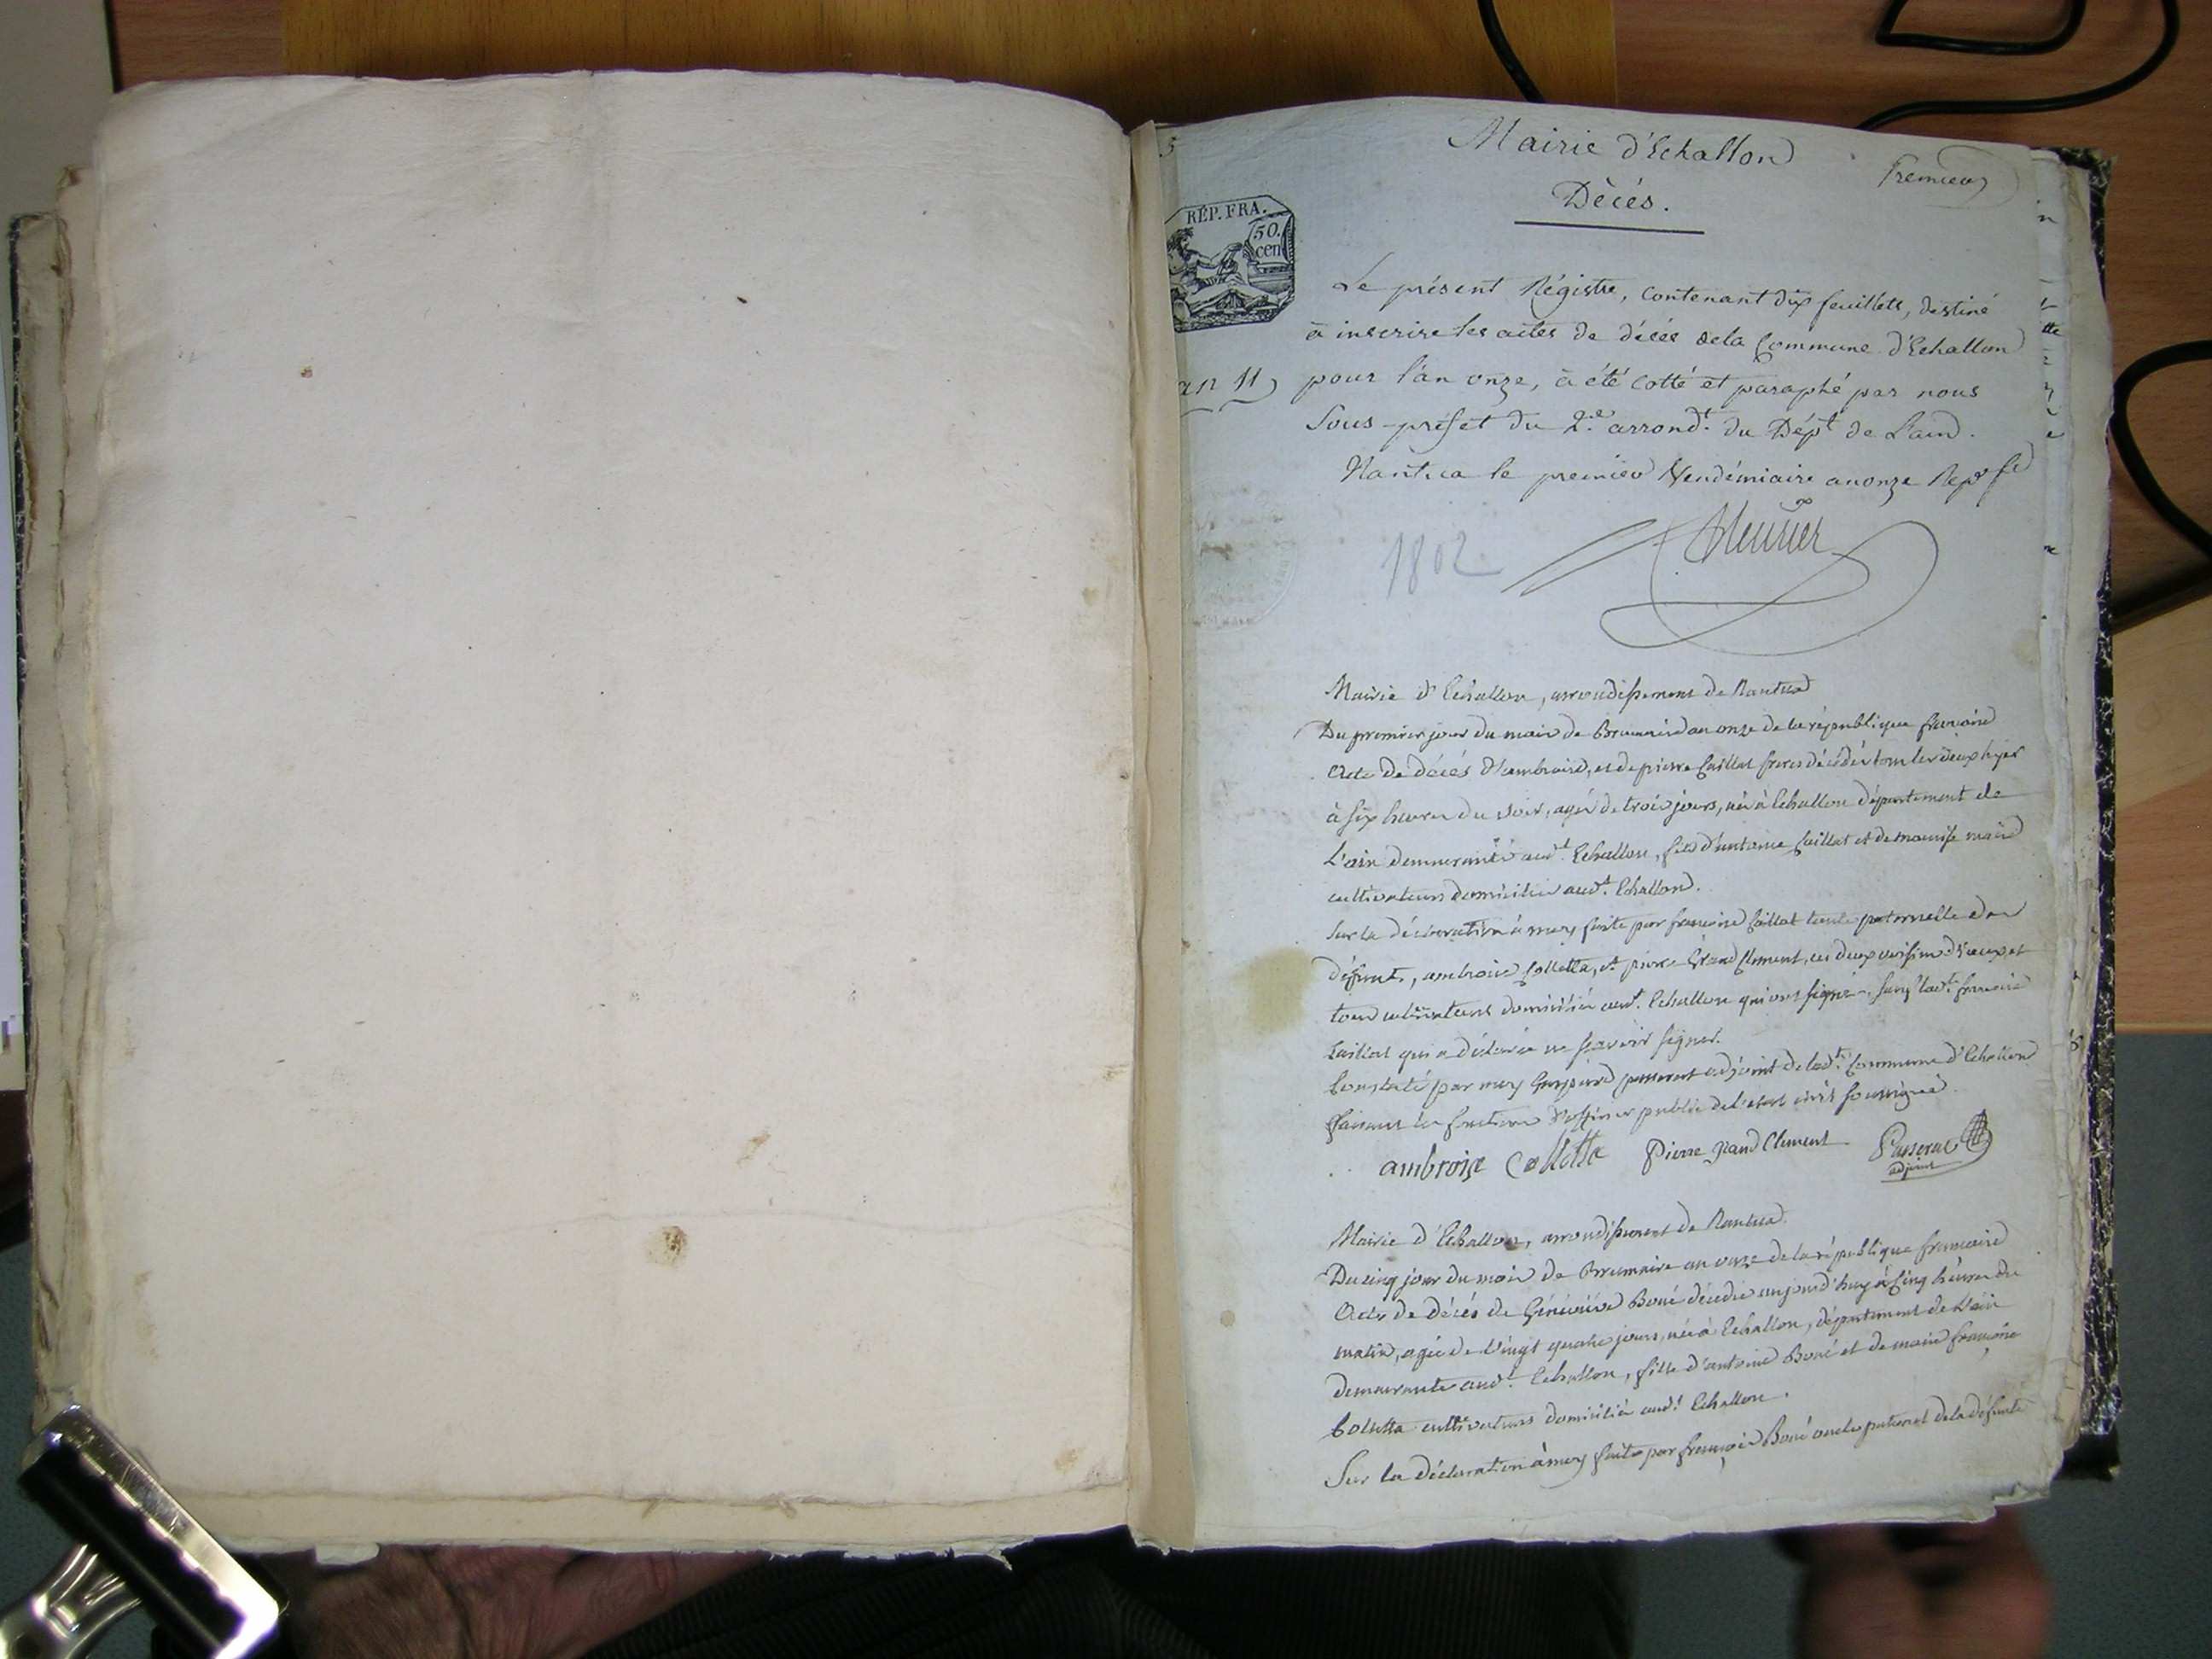 5
Mairie d'Echallon
Premier
Décès.
RÉP. FRA.
50.
cen
Le présent Régistre, contenant dix feuillets, destiné
à inscrire les actes de décés dela Commune d'Echallon
an 11
pour l'an onze, à été cotté et paraphé par nous
Sous-préfet du 2.e arrond.t du Dép.t de L'ain.
Nantua le premier Vendémiaire an onze
1802
Mairie d'Echallon, arrondissement de Nantua
Du premier jour du mois de Brumaire an onze de la république francoise
Acte de décés d'ambroise, et de pierre Caillat freres décédés tous les deux hyer
à six heures du soir, agés de trois jours, nés à Echallon département de
L'ain demeurants aud.t Echallon, fils d'antoine Caillat et de
cultivateurs domiciliés aud.t Echallon.
Sur la déclaration à moy faite par francoise Caillat tante paternelle des
défunts, ambroise Colletta, et pierre Grand Clement, ces deux voisins d'iceux et
tous cultivateurs domiciliés aud.t Echallon qui ont signé, sauf lad.te francoise
Caillat qui a déclaré ne scavoir signer.
Constaté par moy Gaspard passerat adjoint de lad.te Commune d'Echallon
faisant les fonctions d'officier public de l'etat civil soussigné.
ambroise Colletta Pierre Grand Clement Passerat
adjoint
Mairie d'Echallon, arrondissement de Nantua.
Du cinq jour du mois de Brumaire an onze de la république francoise
Acte de décés de Généviéve Boné décédée aujourd'huy à cinq heures du
matin, agée de vingt quatre jours, née à Echallon, département de L'ain
demeurante aud.t Echallon, fille d'antoine Boné et de marie francoise
Colletta cultivateurs domiciliés aud.t Echallon.
Sur la déclaration à moy faite par francois Boné oncle paternel de la défunte